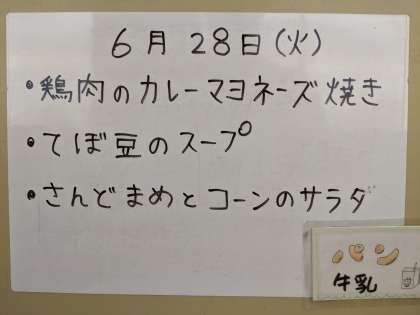 6月28日(火)
・鶏肉のカレーマヨネーズ焼き
・てぼ豆のスープ
・さんどまめとコーンのサラダ
パン
牛乳